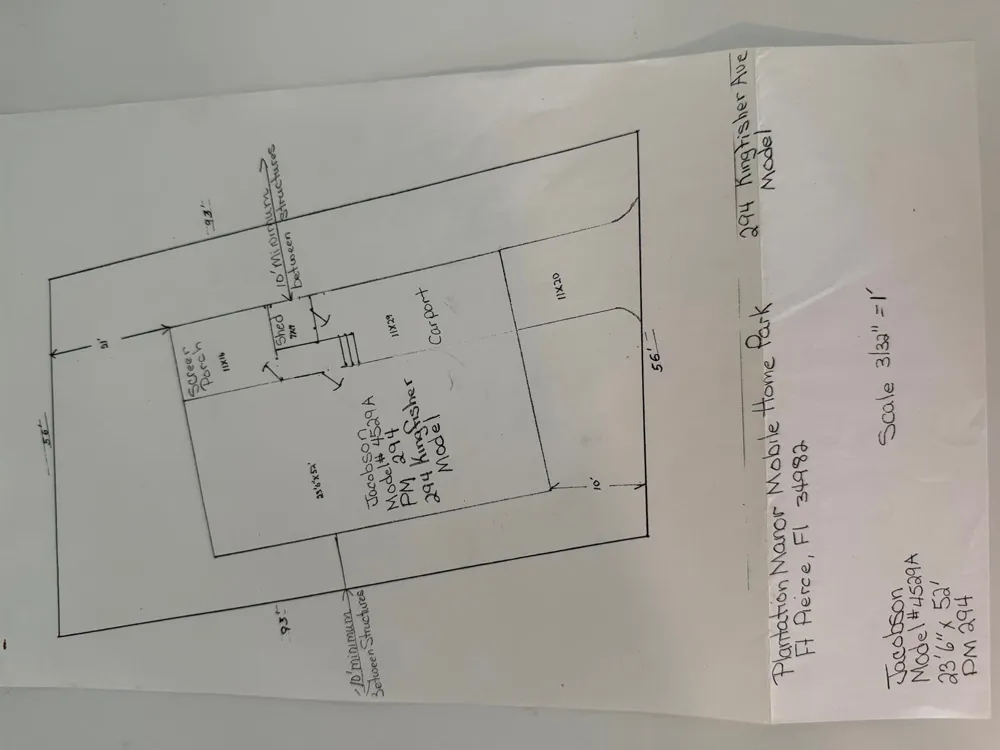 56'
93'
21'
Screen
Porch
11X16
Shed
7X9
10' Minimum
between structures
11X29
Carport
11X20
23'6"X52'
Jacobson
Model# 4529A
PM 294
294 Kingfisher
Model
10'
56'
93'
10' minimum
Between Structures
Plantation Manor Mobile Home Park
Ft Pierce, Fl 34982
294 Kingfisher Ave
Model
Scale 3/32" = 1'
Jacobson
Model #4529A
23'6" x 52'
PM 294